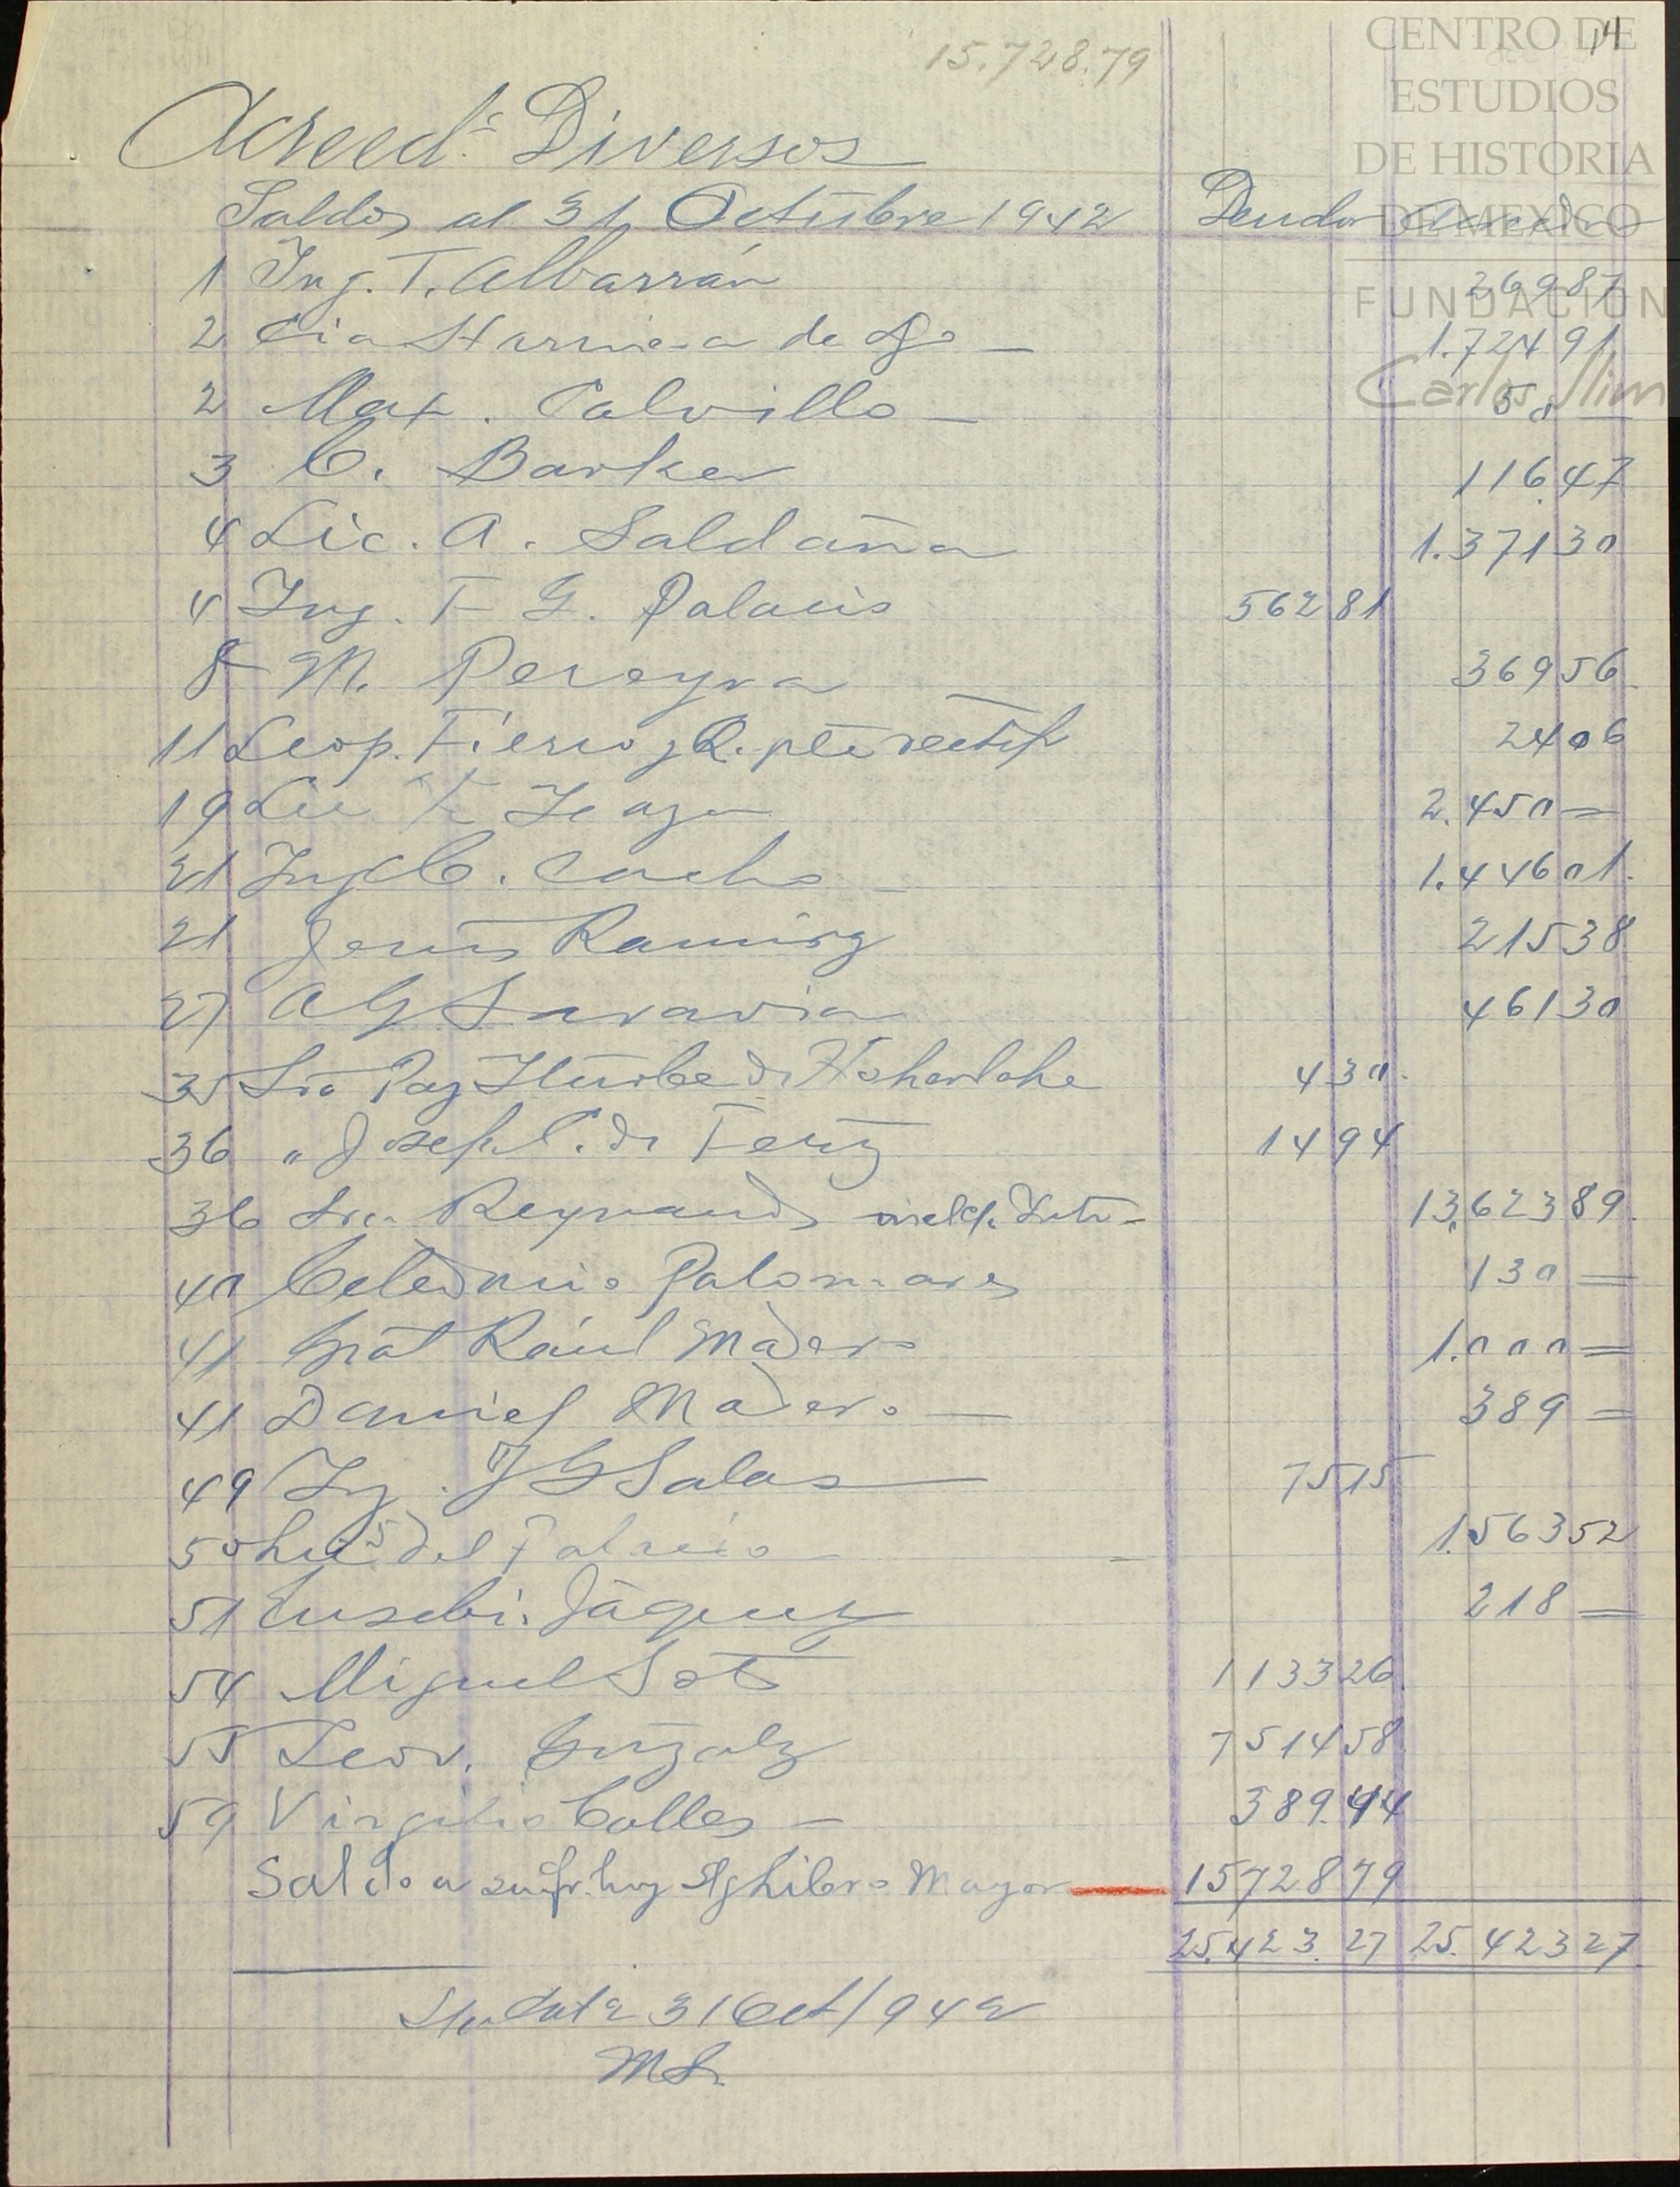 15.728.79
14
CENTRO DE
ESTUDIOS
DE HISTORIA
DE MEXICO
FUNDACIÓN
Carlos Slim
Acreeds. Diversos
Saldos al 31 Octubre 1942 Deudor Acreedor
1 Ing. T. Albarrán 269 87
2 Cia Harinera de Go — 1.724 91
2 Max. Calvillo — 50 —
3 C. Barker 116.47
4 Lic. A. Saldaña 1.371 30
4 Ing. F G. Palacio 562 81
8 M. Pereyra 369 56
11 Leop. Fierro y R. pte rectif 24 06
19 Lic 2.450 =
21 Ing C. 1.446 01.
21 Jesús Ramirez 215 38
27 A G Saravia 461 30
35 Sra Paz Iturbe de Hohenlohe 4 30.
36 " Josef C. de Feriz 14 94
36 Sra. Reynaud 13,623 89
40 Celedonio Palomares 130 =
41 Gral Raúl Madero 1.000 =
41 Daniel Madero — 389 =
49 Ing. J G Salas — 75 15
50 Luis del Palacio — 1.563 52
51 Eusebio Jáquez 218 =
54 Miguel Soto 1133 26
55 Leov. Gnzalz 7514 58
59 Virgilio Calles — 389.44
Saldo a Libro Mayor — 15728 79
25.423.27 25.423 27
31 Oct/942
MS.